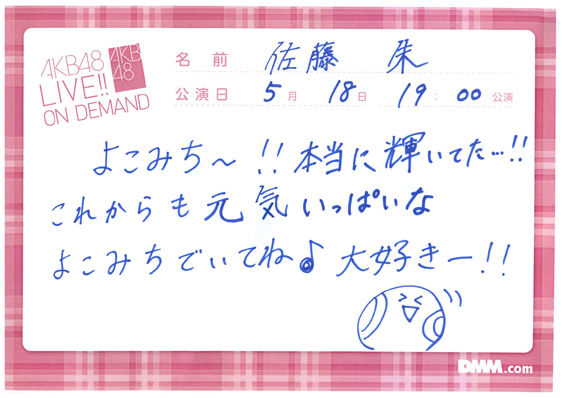 AKB48
LIVE!!
ON DEMAND
AKB
48
名前 佐藤 朱
公演日 5月 18日 19:00 公演
よこみち〜!!本当に輝いてた…!!
これからも元気いっぱいな
よこみちでいてね♪ 大好きー!!
DMM.com